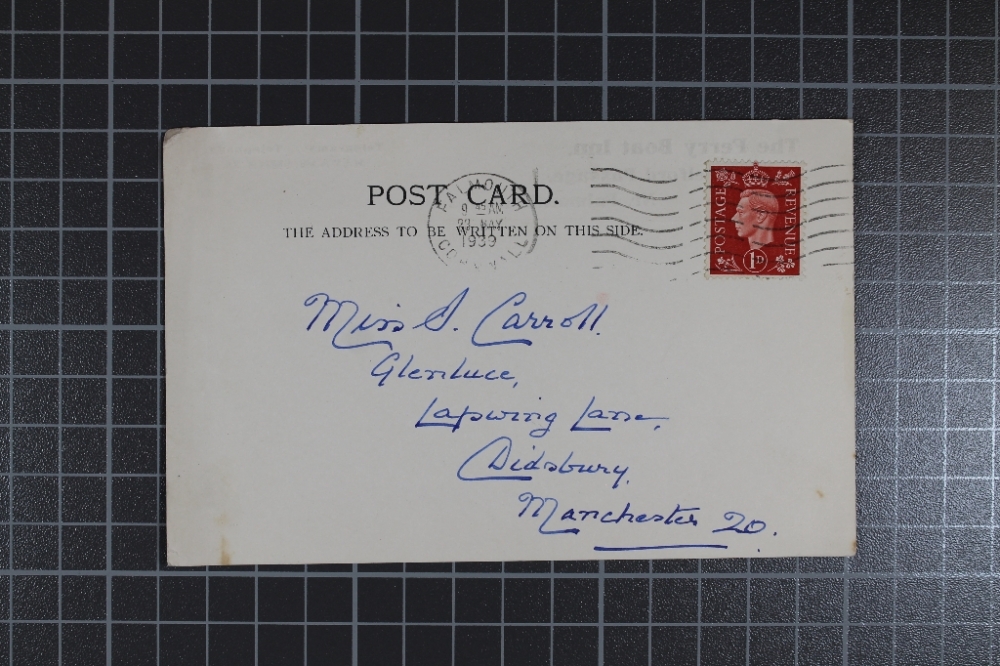 The Ferry Boat Inn.
POST CARD.
THE ADDRESS TO BE WRITTEN ON THIS SIDE.
FALMOUTH
9 AM
MAY
1939
CORNWALL
POSTAGE
REVENUE
1D
Miss S. Carroll.
Glenluce,
Lapwing Lane,
Didsbury,
Manchester 20.